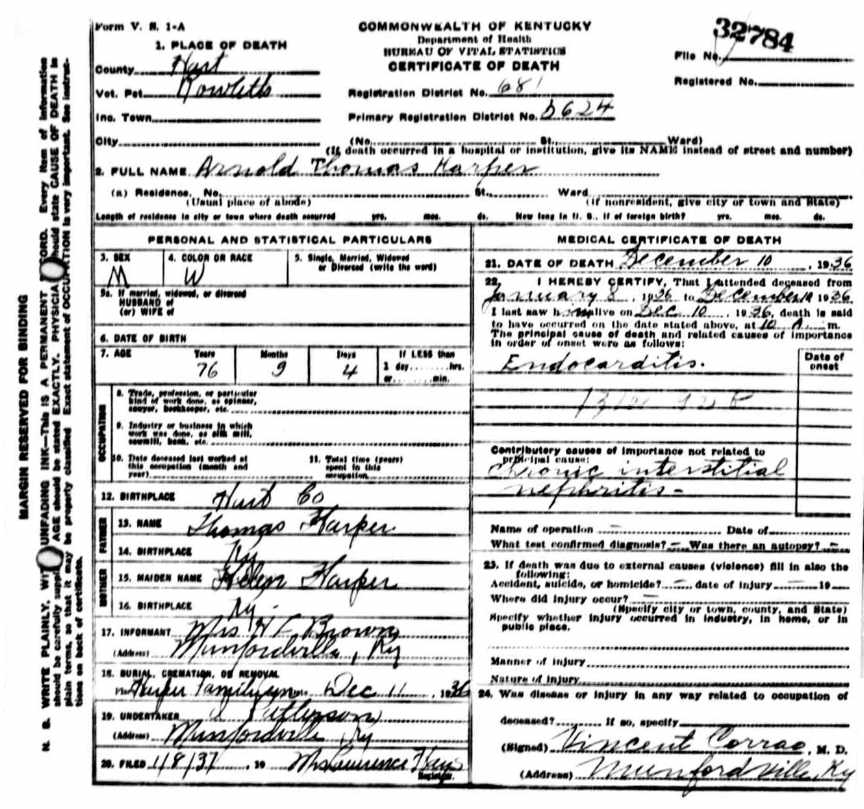 Form V. S. 1-A
COMMONWEALTH OF KENTUCKY
Department of Health
BUREAU OF VITAL STATISTICS
CERTIFICATE OF DEATH
32784
File No.
Registered No.
1. PLACE OF DEATH
County Hart
Vot. Pct Rowletts
Inc. Town
City
Registration District No. 681
Primary Registration District No. 5624
(No. St. Ward)
(If death occurred in a hospital or institution, give its NAME instead of street and number)
2. FULL NAME Arnold Thomas Harper
(a) Residence. No. St. Ward
(Usual place of abode) (If nonresident, give city or town and State)
Length of residence in city or town where death occurred yrs. mos. ds. How long in U. S., if of foreign birth? yrs. mos. ds.
PERSONAL AND STATISTICAL PARTICULARS
3. SEX 4. COLOR OR RACE 5. Single, Married, Widowed
or Divorced (write the word)
M W
5a. If married, widowed, or divorced
HUSBAND of
(or) WIFE of
6. DATE OF BIRTH
7. AGE Years Months Days If LESS than
1 day hrs.
or min.
76 9 4
OCCUPATION
8. Trade, profession, or particular
kind of work done, as spinner,
sawyer, bookkeeper, etc.
9. Industry or business in which
work was done, as silk mill,
sawmill, bank, etc.
10. Date deceased last worked at
this occupation (month and
year)
11. Total time (years)
spent in this
occupation
12. BIRTHPLACE Hart Co
FATHER
13. NAME Thomas Harper
14. BIRTHPLACE Ky
MOTHER
15. MAIDEN NAME Helen Harper
16. BIRTHPLACE Ky.
17. INFORMANT Mrs Brown
(Address) Munfordville, Ky
18. BURIAL, CREMATION, OR REMOVAL
Place Harper Family Date Dec 11, 1936
19. UNDERTAKER
(Address) Munfordville, Ky
20. FILED 1/8/37, 19 Mrs Lawrence
Registrar.
MEDICAL CERTIFICATE OF DEATH
21. DATE OF DEATH December 10, 1936
22. I HEREBY CERTIFY, That I attended deceased from
January 8, 1936 to December 10 1936
I last saw him alive on Dec 10 1936, death is said
to have occurred on the date stated above, at 10 A. m.
The principal cause of death and related causes of importance
in order of onset were as follows:
Date of
onset
Endocarditis.
Contributory causes of importance not related to
principal cause:
Chronic interstitial
nephritis-
Name of operation - Date of
What test confirmed diagnosis? - Was there an autopsy? -
23. If death was due to external causes (violence) fill in also the
following:
Accident, suicide, or homicide? - date of injury - 19
Where did injury occur? -
(Specify city or town, county, and State)
Specify whether injury occurred in industry, in home, or in
public place.
Manner of injury
Nature of injury
24. Was disease or injury in any way related to occupation of
deceased? If so, specify
(Signed) Vincent Corrao, M. D.
(Address) Munfordville, Ky
MARGIN RESERVED FOR BINDING